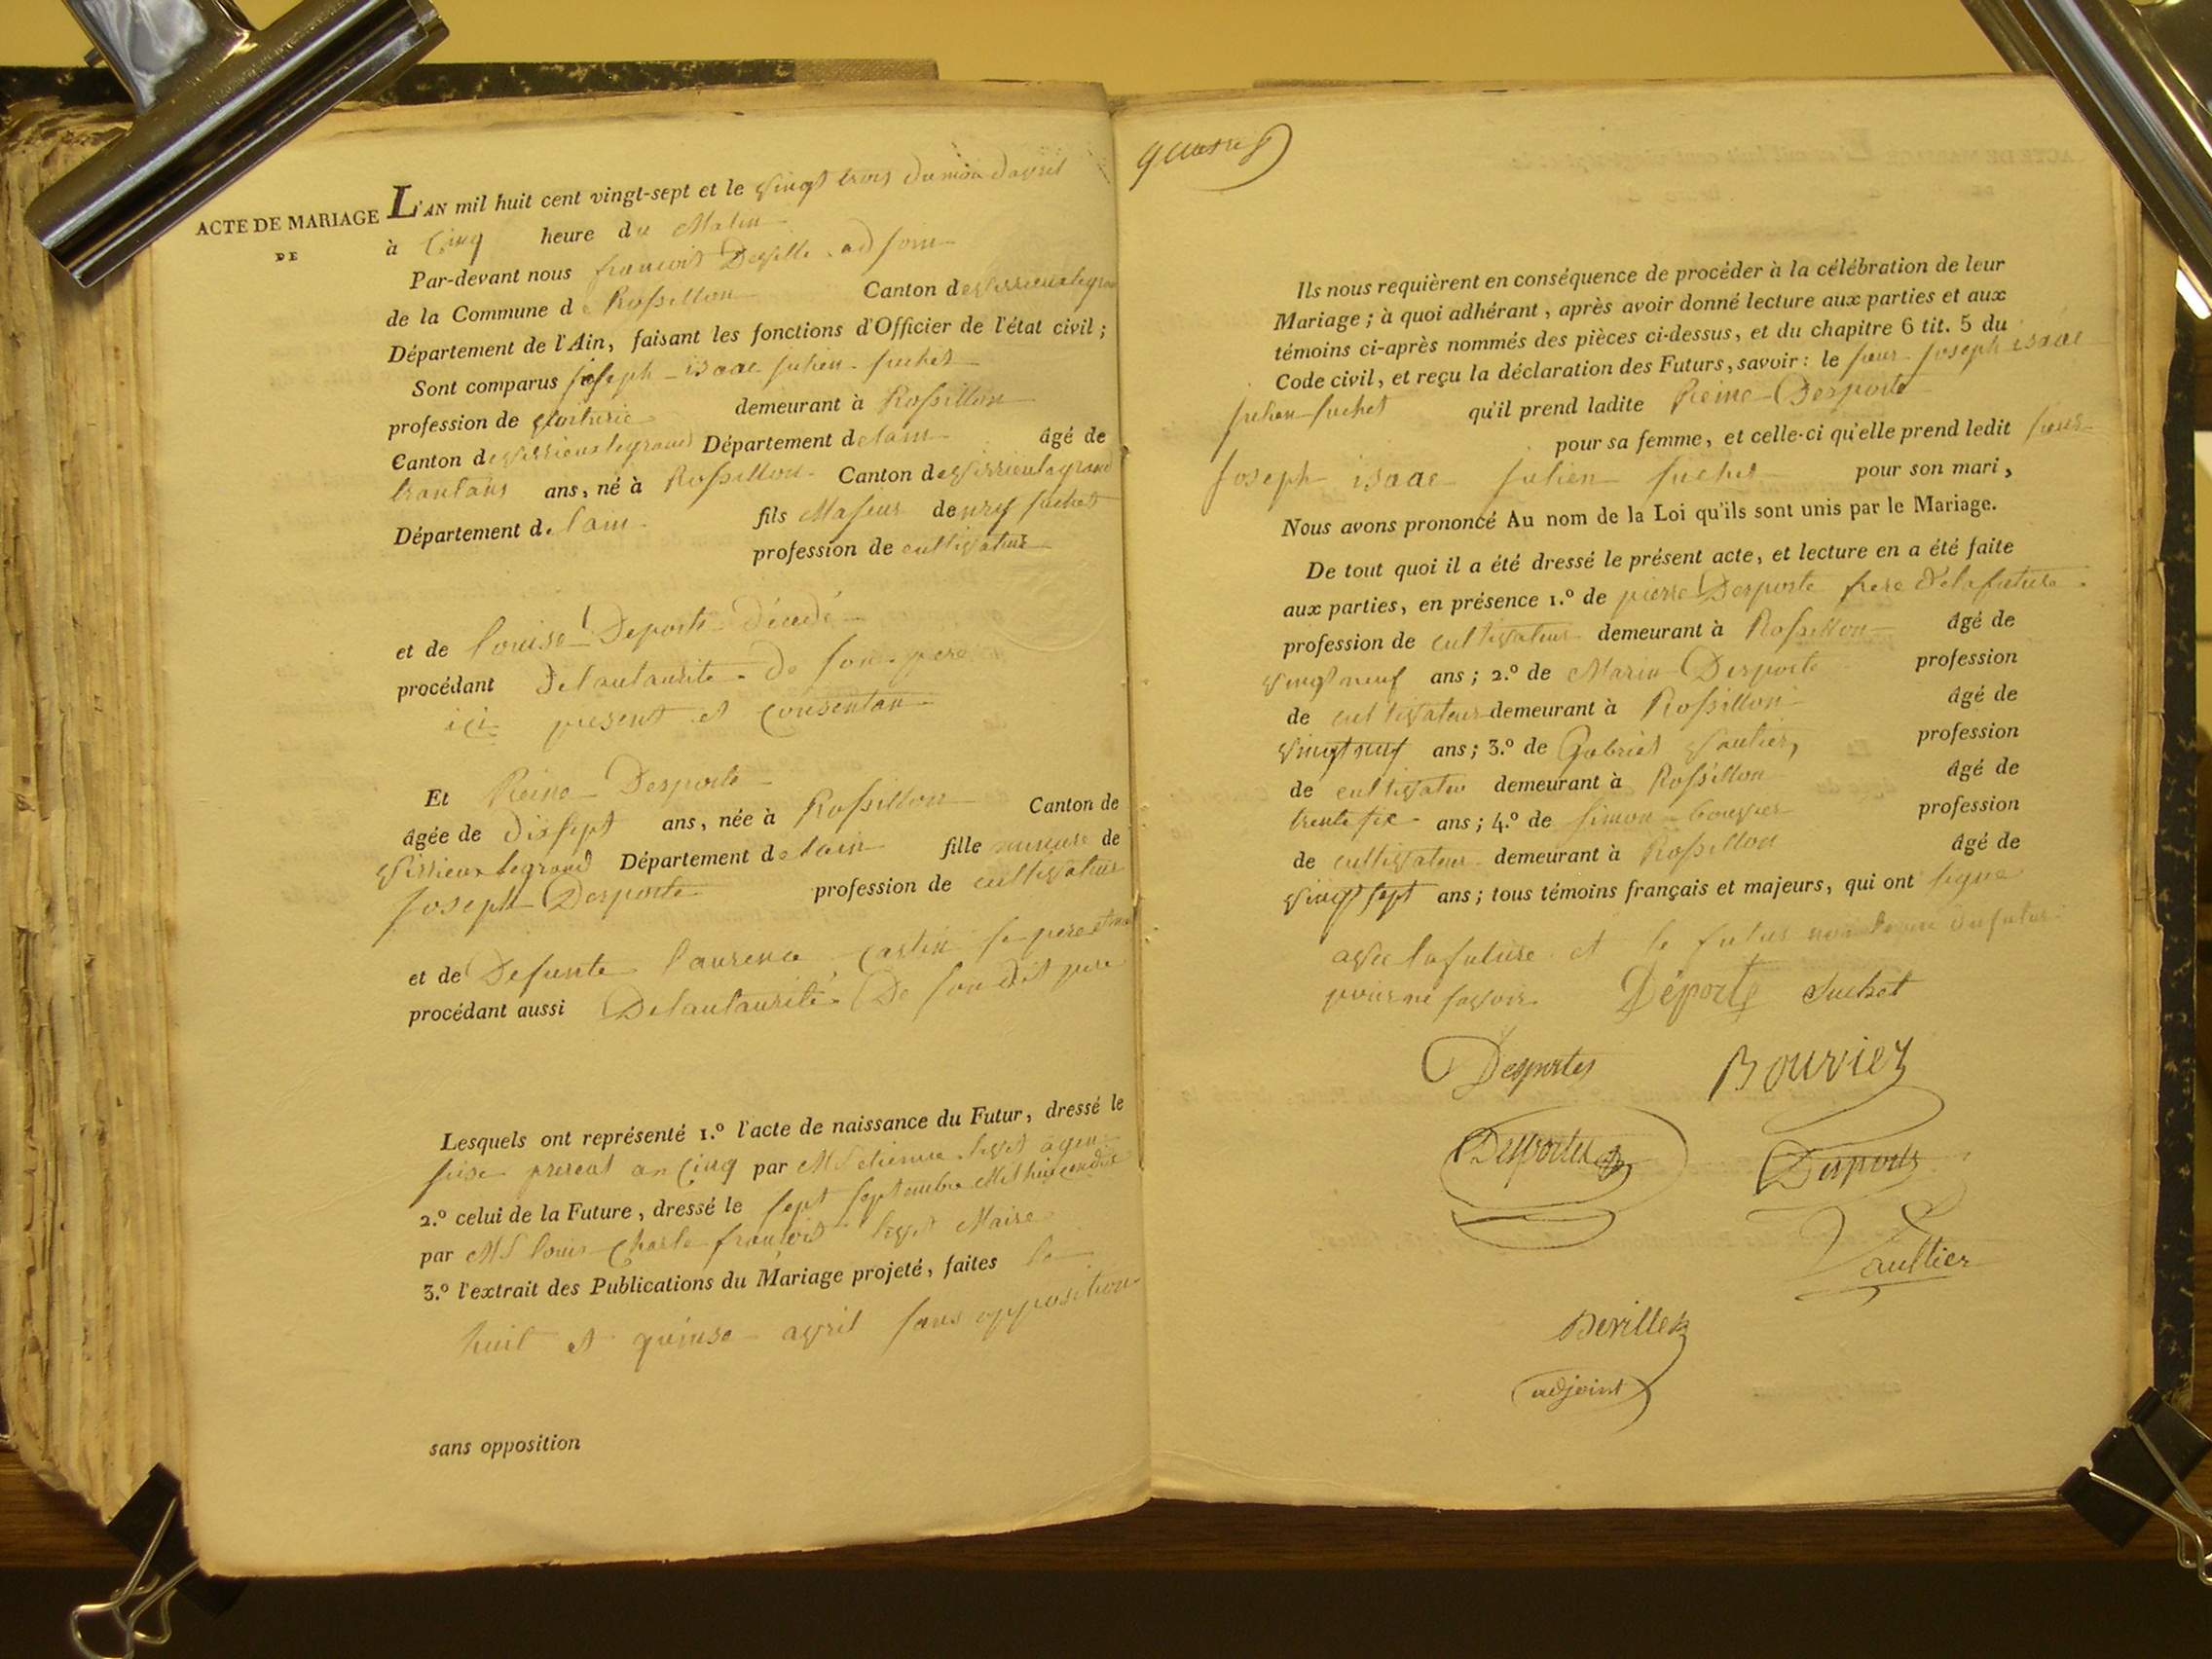 ACTE DE MARIAGE
DE
L'AN mil huit cent vingt-sept et le vingt trois du mois d'avril
à Cinq heure du Matin
Par-devant nous francois Deville adjoin
de la Commune de Rossillon Canton de virieux legrand
Département de l'Ain, faisant les fonctions d'Officier de l'état civil ;
Sont comparus joseph isaac julien suchet
profession de demeurant à Rossillon
Canton de virrieux legrand Département de lain âgé de
trantans ans, né à Rossillon Canton de virrieu legrand
Département de lain fils Majeur de suchet
profession de cultivateur
et de louise Deporte décédé
procédant de lautaurite de son pere
ici present et consentan
Et Reine Desporte
âgée de dixsept ans, née à Rossillon Canton de
virrieux legrand Département de lain fille mineure de
joseph Desporte profession de cultivateur
et de Defunte laurence
procédant aussi De lautaurité De son dit pere
Lesquels ont représenté 1.º l'acte de naissance du Futur, dressé le
an cinq par M etienne agen
2.º celui de la Future, dressé le sept septembre Mil huit cent
par M louis Charle francois Maire
3.º l'extrait des Publications du Mariage projeté, faites le
huit et quinse avril sans opposition
sans opposition
Ils nous requièrent en conséquence de procéder à la célébration de leur
Mariage ; à quoi adhérant, après avoir donné lecture aux parties et aux
témoins ci-après nommés des pièces ci-dessus, et du chapitre 6 tit. 5 du
Code civil, et reçu la déclaration des Futurs, savoir : le sieur joseph isaac
julien suchet qu'il prend ladite Reine Desporte
pour sa femme, et celle-ci qu'elle prend ledit sieur
joseph isaac julien suchet pour son mari,
Nous avons prononcé Au nom de la Loi qu'ils sont unis par le Mariage.
De tout quoi il a été dressé le présent acte, et lecture en a été faite
aux parties, en présence 1.º de pierre Desporte frere de la future
profession de cultivateur demeurant à Rossillon âgé de
vingt neuf ans ; 2.º de Marin Desporte profession
de cultivateur demeurant à Rossillon âgé de
vingt neuf ans ; 3.º de Gabriel vautier, profession
de cultivateur demeurant à Rossillon âgé de
trente six ans ; 4.º de simon bouvier profession
de cultivateur demeurant à Rossillon âgé de
vingt sept ans ; tous témoins français et majeurs, qui ont signe
avec la future et le futur du futur
pour ne savoir Déporte Suchet
Desportes Bouvier
Desportes Desportes
Vaultier
Deville
adjoint